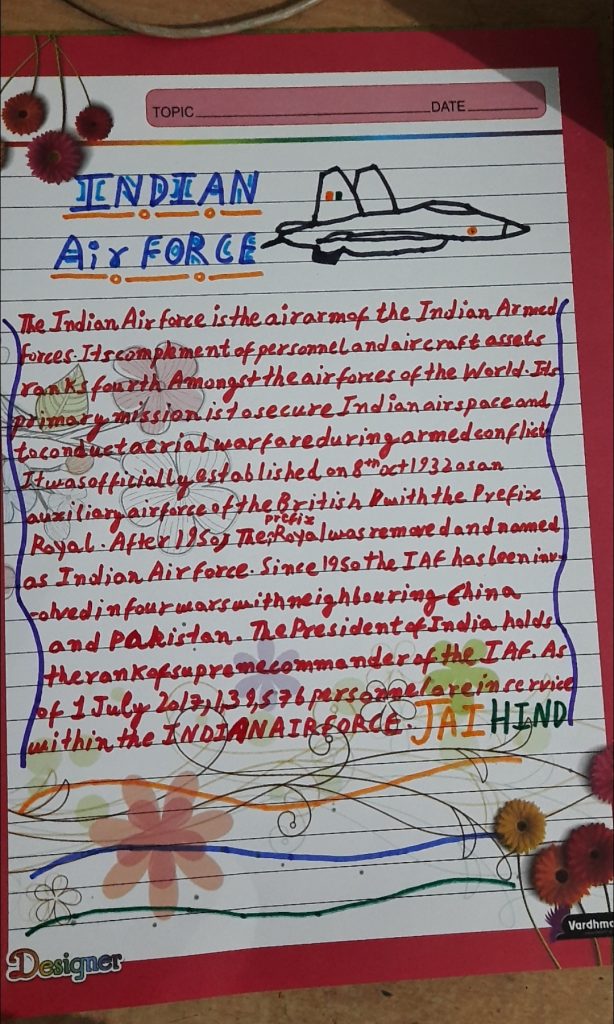 TOPIC DATE
INDIAN
Air FORCE
The Indian Air force is the air arm of the Indian Armed
forces. Its complement of personnel and aircraft assets
ranks fourth Amongst the airforces of the World. Its
primary mission is to secure Indian airspace and
to conduct aerial warfare during armed conflict
It was officially established on 8th oct 1932 as an
auxiliary airforce of the British with the Prefix
prefix
Royal. After 1950, The Royal was removed and named
as Indian Air Force. Since 1950 the IAF has been inv-
-olved in four wars with neighbouring China
and Pakistan. The President of India holds
the rank of supreme commander of the IAF. As
of 1 July 2017, 1,39,576 personnel are in service
within the INDIAN AIR FORCE. JAI HIND
Designer
Vardhma